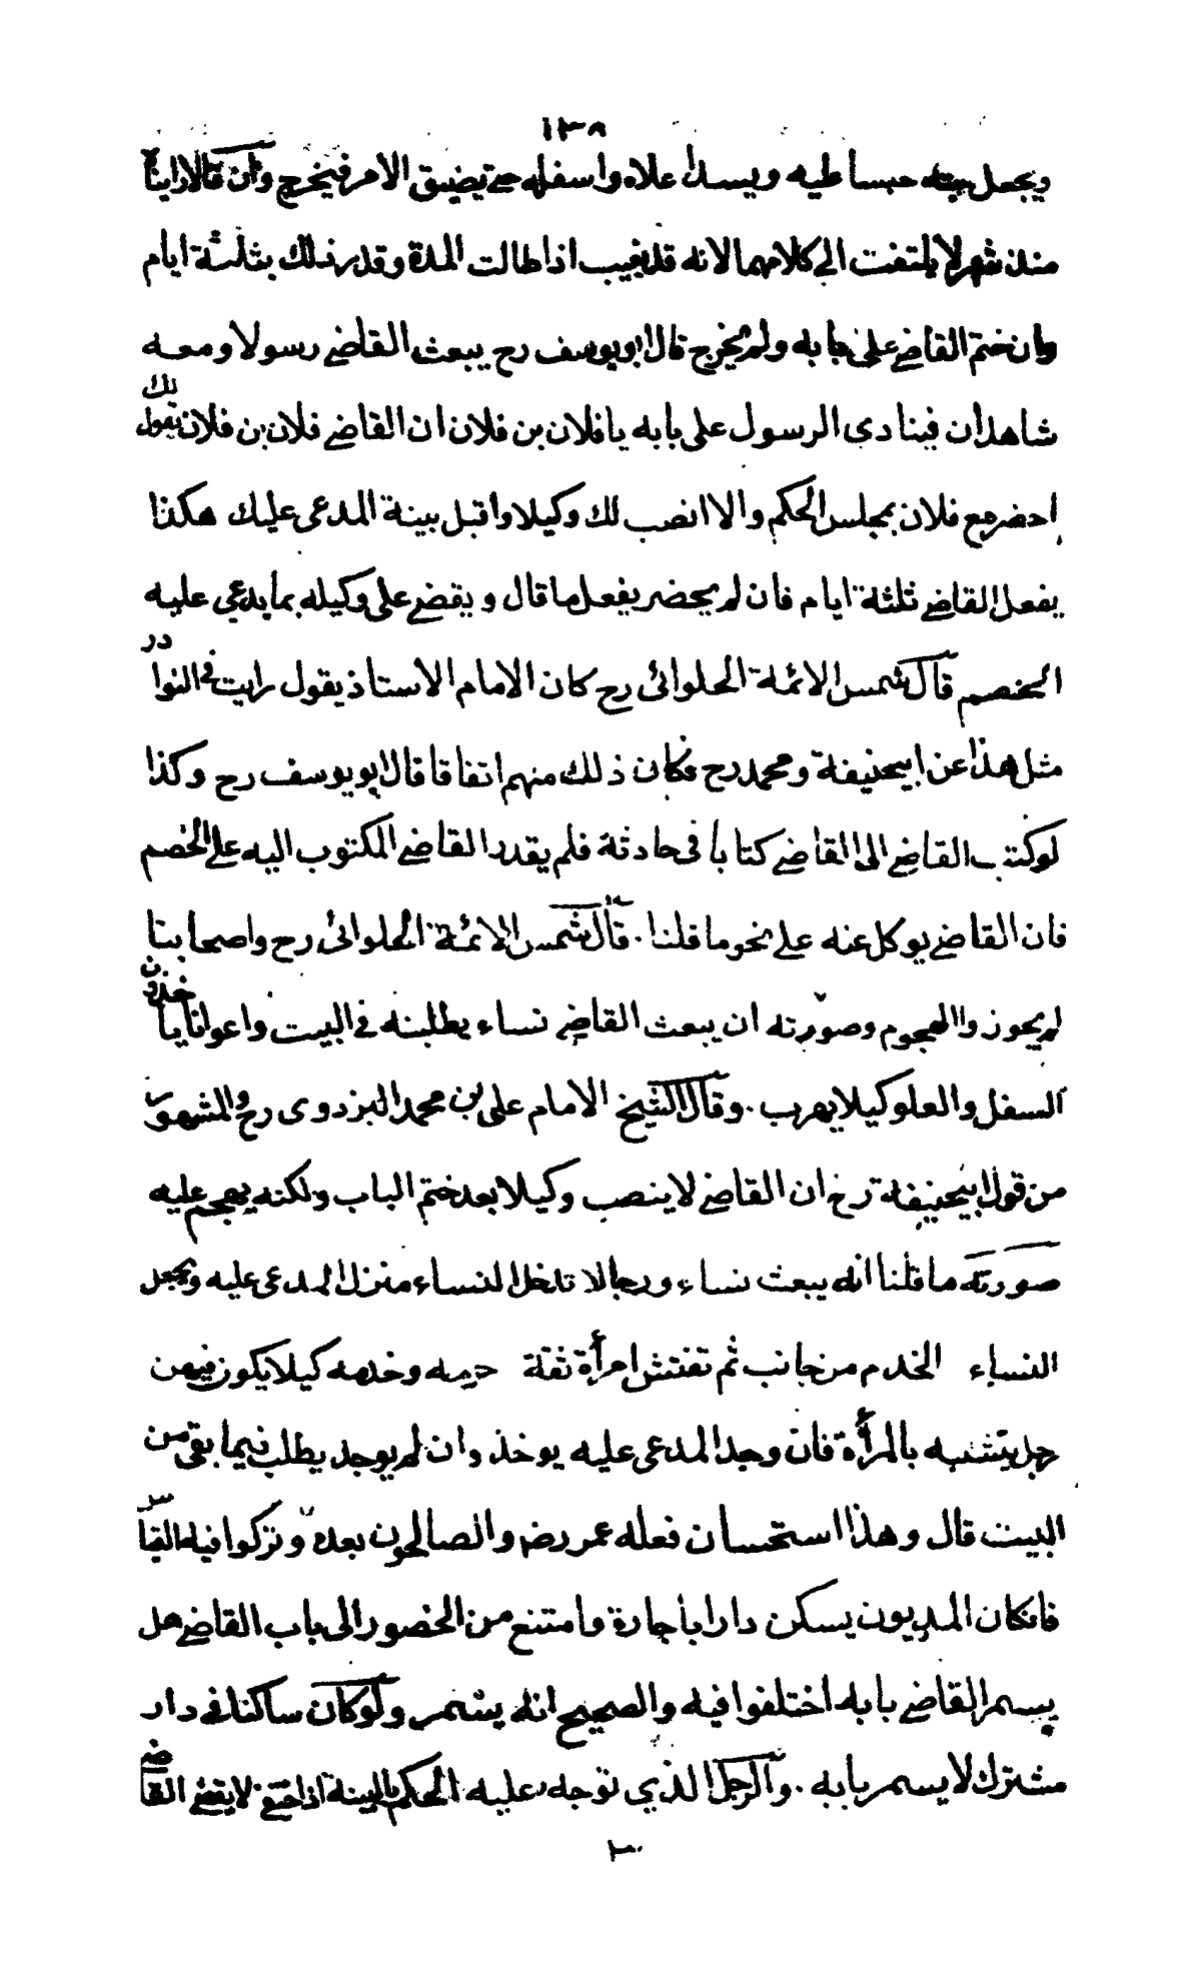 ١٣٨
ويجعل بيته حبسا عليه ويسد اعلاه واسفله حتى يضيق الامر فيخرج وان قالا راينا
منذ شهر لا يلتفت الى كلامهما لانه قد يغيب اذا طالت المدة وقدر ذلك بثلثة ايام
وان ختم القاضى على بابه ولم يخرج قال ابو يوسف رح يبعث القاضى رسولا ومعه
شاهدان فينادى الرسول على بابه يا فلان بن فلان ان القاضى فلان بن فلان يقول لك
احضر مع فلان بمجلس الحكم والا انصب لك وكيلا واقبل بينة المدعى عليك هكذا
يفعل القاضى ثلثة ايام فان لم يحضر يفعل ما قال ويقضى على وكيله بما يدعى عليه
الخصم قال شمس الائمة الحلوائى رح كان الامام الاستاذ يقول رايت فى النوادر
مثل هذا عن ابيحنيفة ومحمد رح فكان ذلك منهم اتفاقا قال ابو يوسف رح وكذا
لو كتب القاضى الى القاضى كتابا فى حادثة فلم يقدر القاضى المكتوب اليه على الخصم
فان القاضى يوكل عنه على نحو ما قلنا . قال شمس الائمة الحلوائى رح واصحابنا
لم يجوزوا الهجوم وصورته ان يبعث القاضى نساء يطلبنه فى البيت واعوانا ياخذون
السفل والعلو كيلا يهرب . وقال الشيخ الامام على بن محمد البزدوى رح والمشهور
من قول ابيحنيفة رح ان القاضى لا ينصب وكيلا بعد ختم الباب ولكنه يهجم عليه
صورته ما قلنا انه يبعث نساء ورجالا تدخل النساء منزل المدعى عليه ويجعل
النساء الخدم من جانب ثم تفتش امرأة ثقة حرمه وخدمه كيلا يكون فيهن
رجل يتشبه بالمرأة فان وجد المدعى عليه يوخذ وان لم يوجد يطلب فيما بقى من
البيت قال وهذا استحسان فعله عمر رضه والصالحون بعده وتركوا فيه القياس
فانكان المديون يسكن دارا باجارة وامتنع من الحضور الى باب القاضى هل
يسمر القاضى بابه اختلفوا فيه والصحيح انه يسمر ولو كان ساكنا فى دار
مشترك لا يسمر بابه . والرجل الذي توجه عليه الحكم بالبينة اذا اختفى لا يقضى القاضى